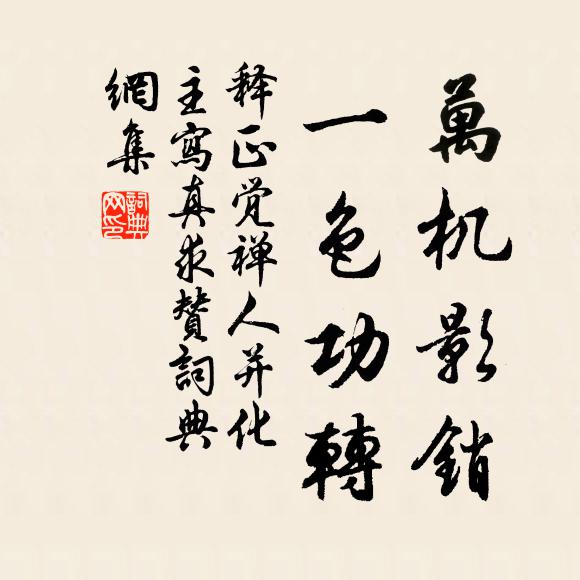 萬机影銷
一色功轉
释正觉禅人并化
主寫真求贊詞典
網集
詞典网印